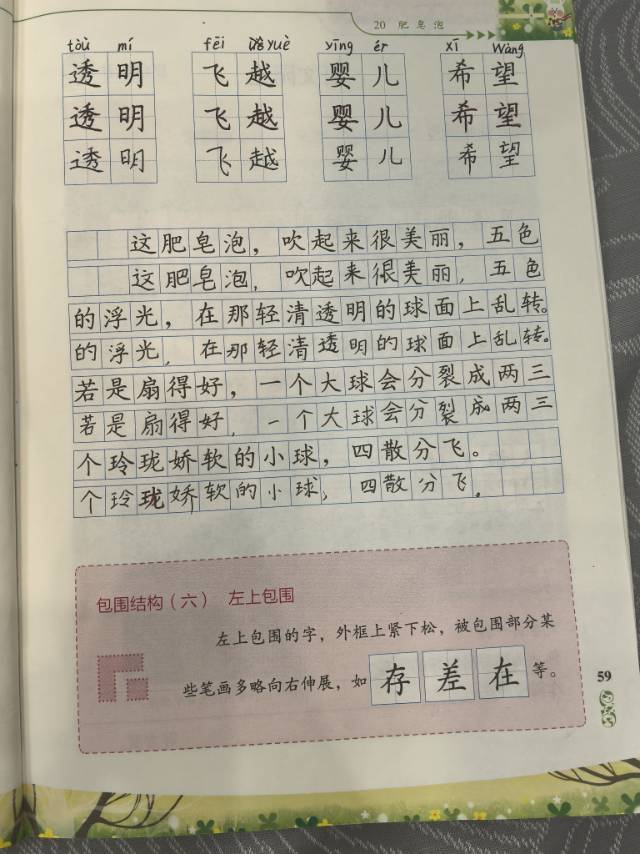 20 肥皂泡
tòu mí fēi yuè yīng ér xī Wàng
透明 飞越 婴儿 希望
透明 飞越 婴儿 希望
透明 飞越 婴儿 希望
这肥皂泡，吹起来很美丽，五色
这肥皂泡，吹起来很美丽，五色
的浮光，在那轻清透明的球面上乱转。
的浮光，在那轻清透明的球面上乱转。
若是扇得好，一个大球会分裂成两三
若是扇得好，一个大球会分裂成两三
个玲珑娇软的小球，四散分飞。
个玲珑娇软的小球，四散分飞。
包围结构（六） 左上包围
左上包围的字，外框上紧下松，被包围部分某
些笔画多略向右伸展，如 存 差 在 等。
59